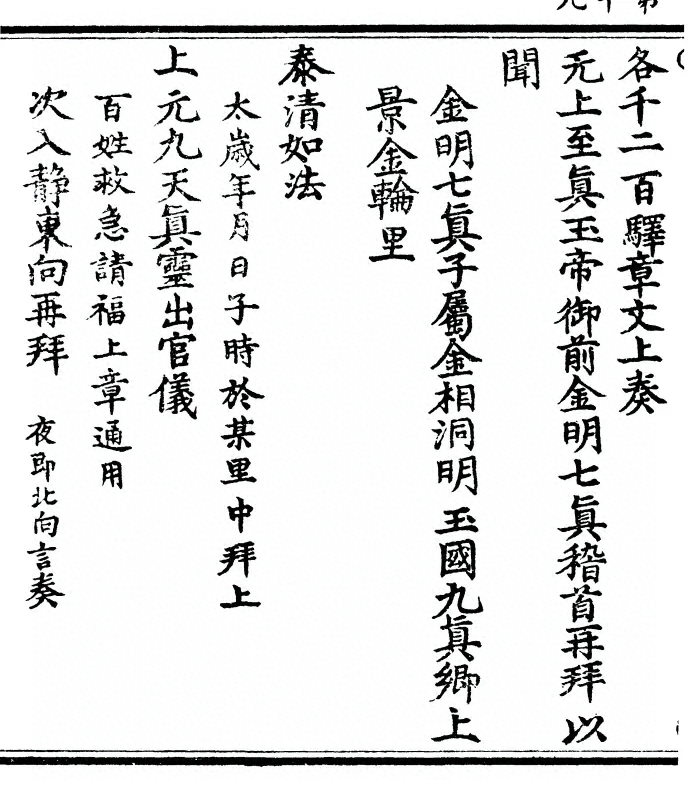 各千二百驛章文上奏
无上至眞玉帝御前金明七眞稽首再拜以
聞
金明七眞子屬金相洞明玉國九眞鄉上
景金輪里
泰清如法
太歲年月日子時於某里中拜上
上元九天眞靈出官儀
百姓救急請福上章通用
次入靜東向再拜 夜即北向言奏